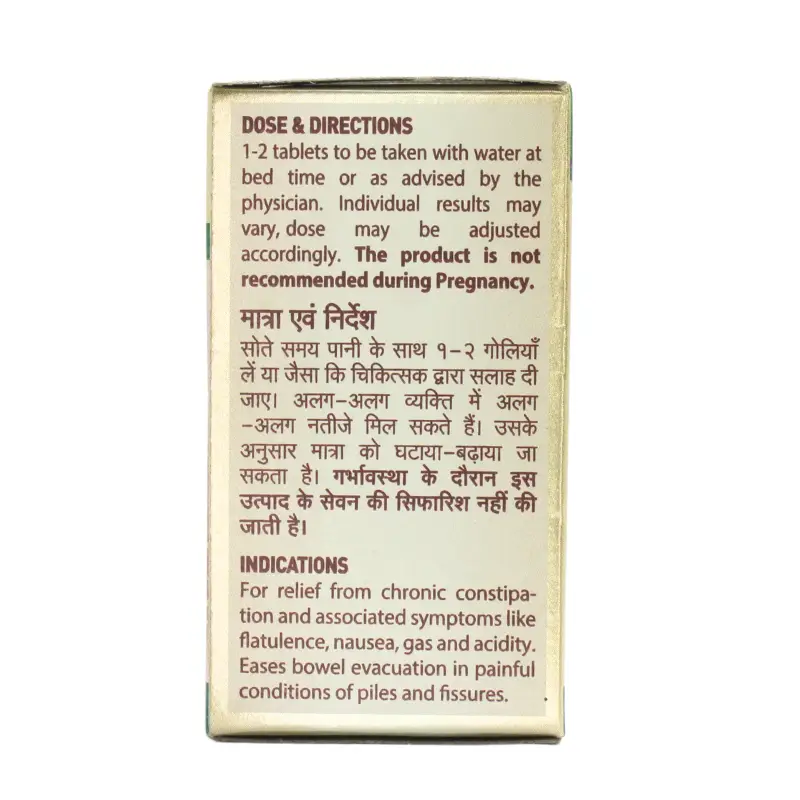 DOSE & DIRECTIONS
1-2 tablets to be taken with water at
bed time or as advised by the
physician. Individual results may
vary, dose may be adjusted
accordingly. The product is not
recommended during Pregnancy.
मात्रा एवं निर्देश
सोते समय पानी के साथ १-२ गोलियाँ
लें या जैसा कि चिकित्सक द्वारा सलाह दी
जाए। अलग-अलग व्यक्ति में अलग
-अलग नतीजे मिल सकते हैं। उसके
अनुसार मात्रा को घटाया-बढ़ाया जा
सकता है। गर्भावस्था के दौरान इस
उत्पाद के सेवन की सिफारिश नहीं की
जाती है।
INDICATIONS
For relief from chronic constipa-
tion and associated symptoms like
flatulence, nausea, gas and acidity.
Eases bowel evacuation in painful
conditions of piles and fissures.